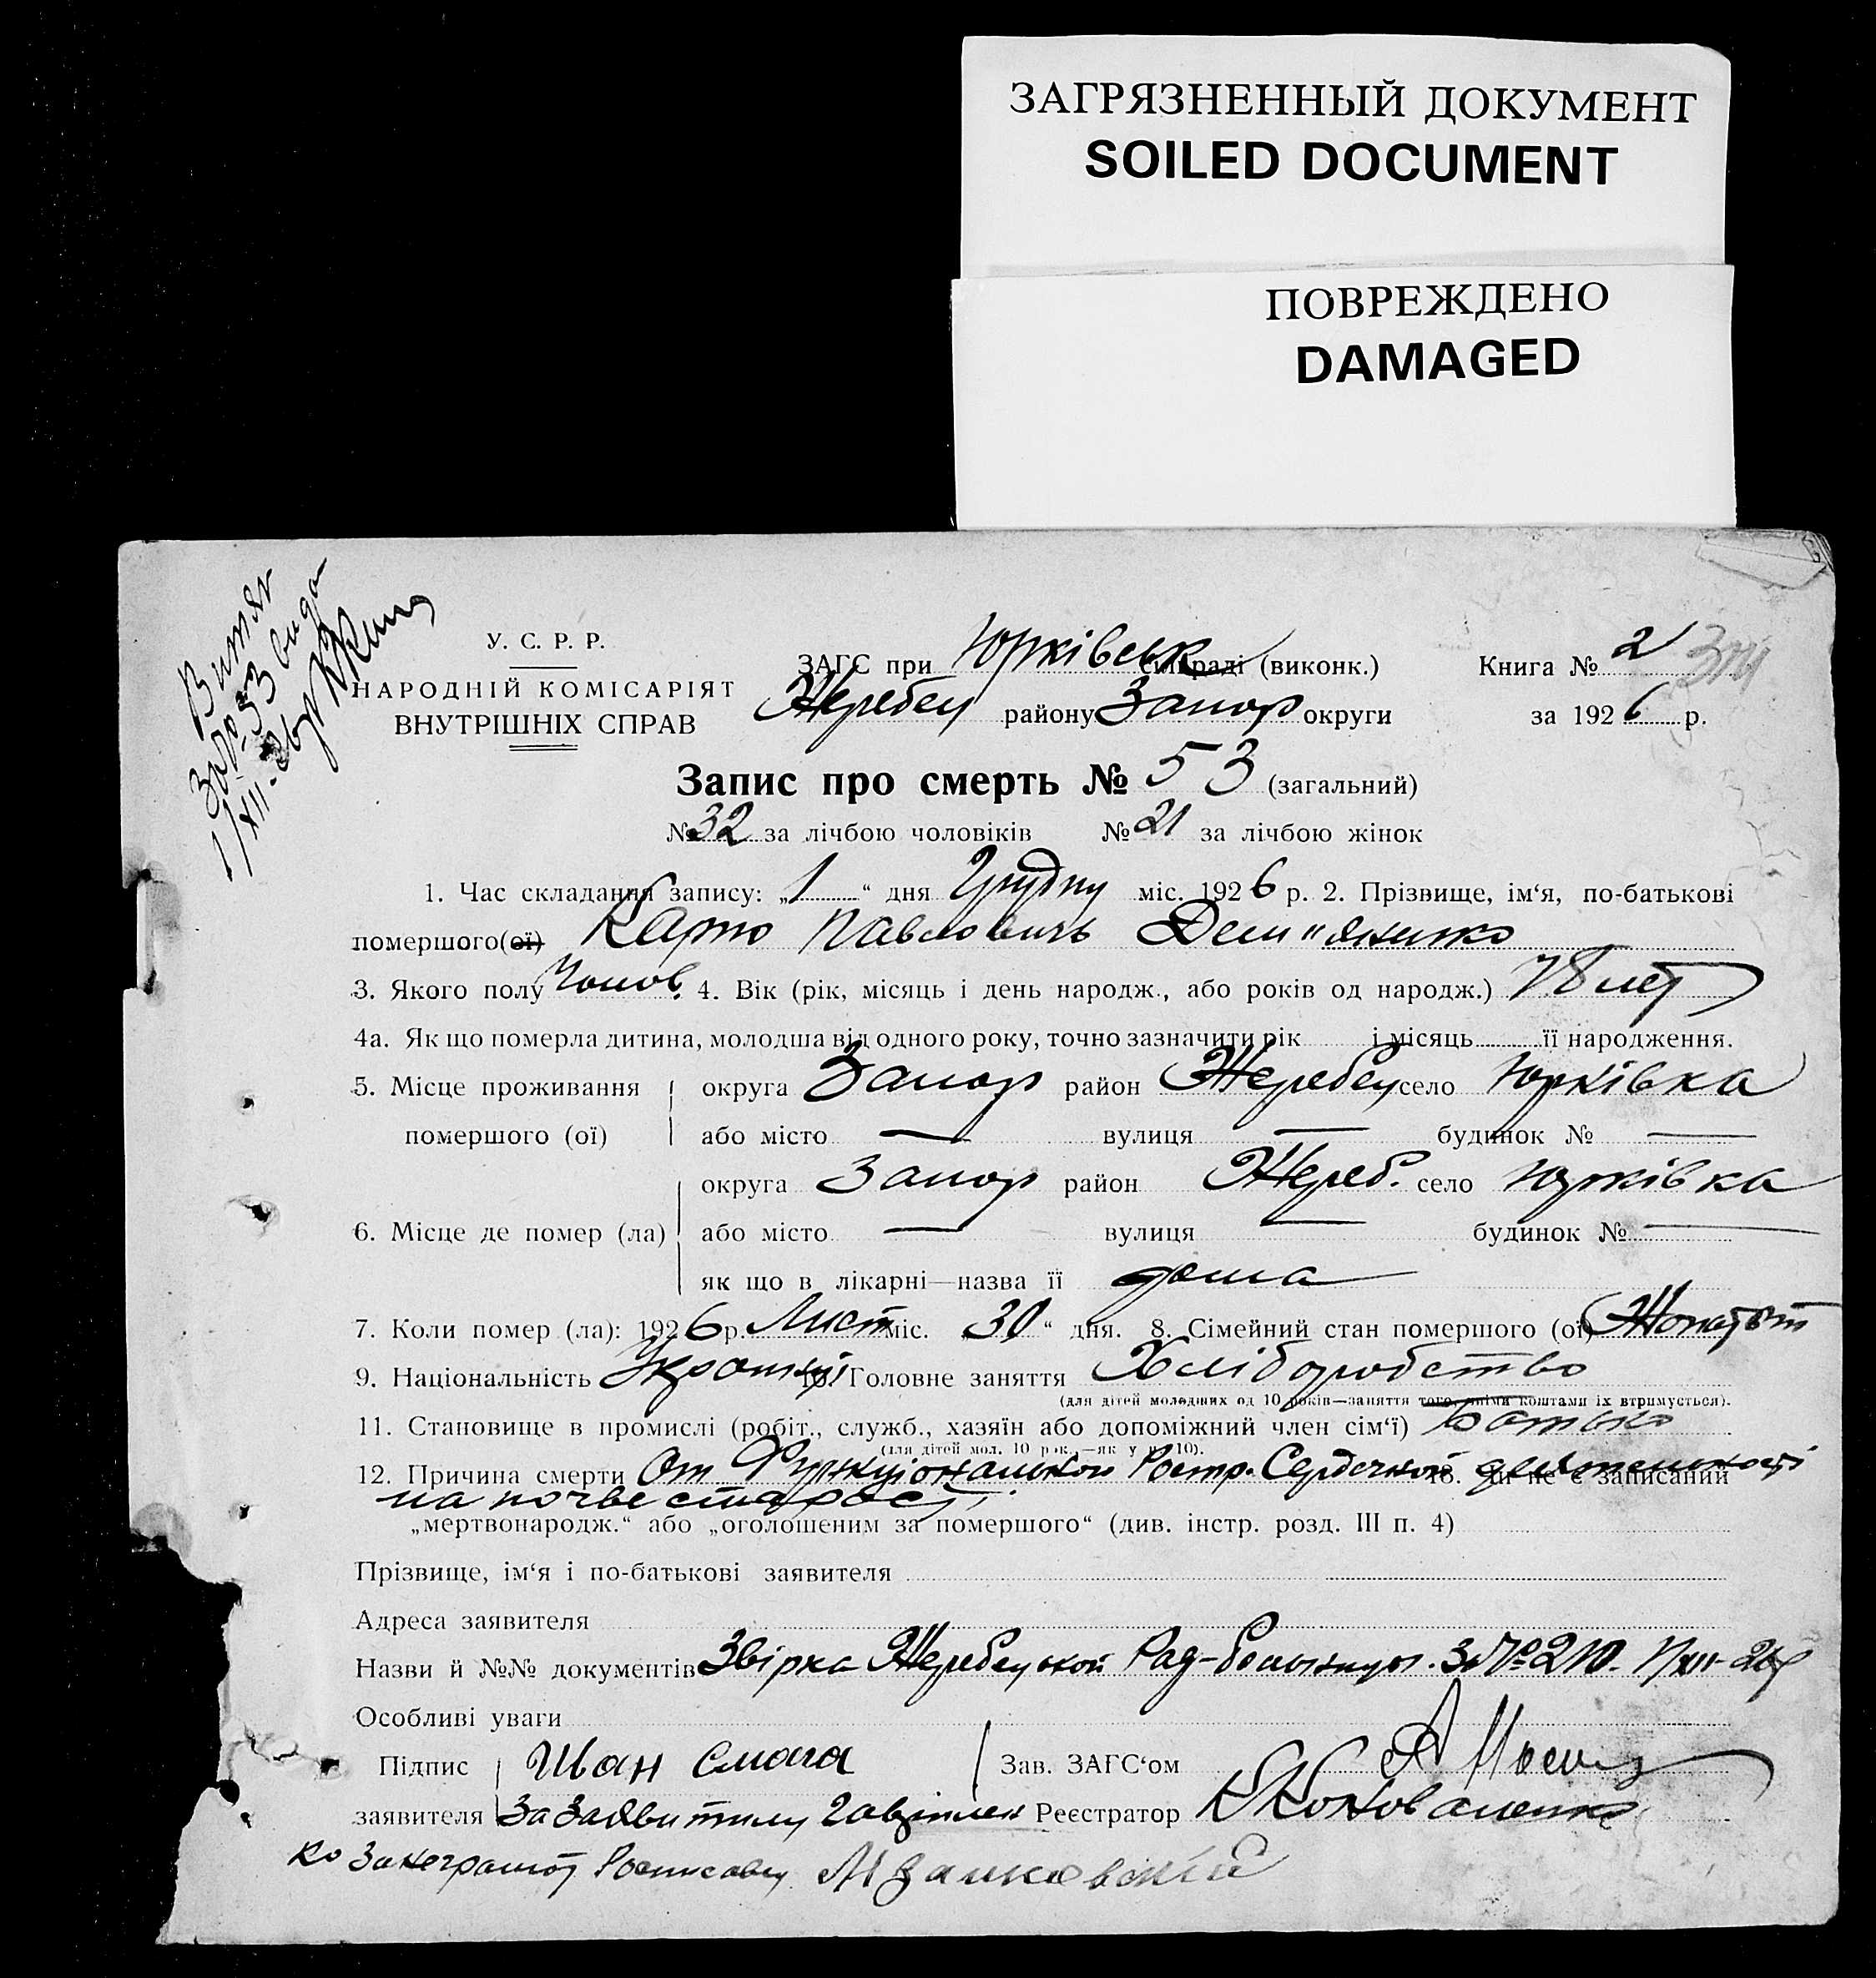 ЗАГРЯЗНЕННЫЙ ДОКУМЕНТ
SOILED DOCUMENT
ПОВРЕЖДЕНО
DAMAGED
Витяг
за № 53 вида
1/XII-26р
У. С. Р. Р.
НАРОДНІЙ КОМІСАРІЯТ
ВНУТРІШНІХ СПРАВ
ЗАГС при Юрківськ сільраді (виконк.)
Жеребец району Запор округи
Книга № 2
за 1926 р.
Запис про смерть № 53 (загальний)
№ 32 за лічбою чоловіків № 21 за лічбою жінок
1. Час складання запису: „1“ дня Грудну міс. 1926 р. 2. Прізвище, ім‘я, по-батькові
помершого(ої) Карпо Павлович Дем"яненко
3. Якого полу Чолов. 4. Вік (рік, місяць і день народж., або років од народж.) 78 лет
4а. Як що померла дитина, молодша від одного року, точно зазначити рік і місяць її народження.
5. Місце проживання округа Запор район Жеребец село Юрківка
помершого (ої) або місто — вулиця — будинок № —
округа Запор район Жереб. село Юрківка
6. Місце де помер (ла) або місто — вулиця — будинок № —
як що в лікарні—назва її дома
7. Коли помер (ла): 1926 р. Лист міс. „30“ дня. 8. Сімейний стан помершого (ої) Жонатый
9. Національність 10. Головне заняття Хліборобство
(для дітей молодших од 10 років—заняття того, чиїми коштами їх втримується).
11. Становище в промислі (робіт., служб., хазяїн або допоміжний член сім‘ї) батько
(для дітей мол. 10 рок.—як у п. 10).
12. Причина смерти От ФункціональнойРостр. Сердечной деятельності 13. Чи не є записаний
на почве старості
„мертвонародж.“ або „оголошеним за помершого“ (див. інстр. розд. III п. 4)
Прізвище, ім‘я і по-батькові заявителя
Адреса заявителя
Назви й №№ документів Звірка Жеребецькой Рад-больниця. За № 210. 1/XII-26р
Особливі уваги
Підпис Иван Смага Зав. ЗАГС‘ом
заявителя За Заявителя Реєстратор К Коноваленко